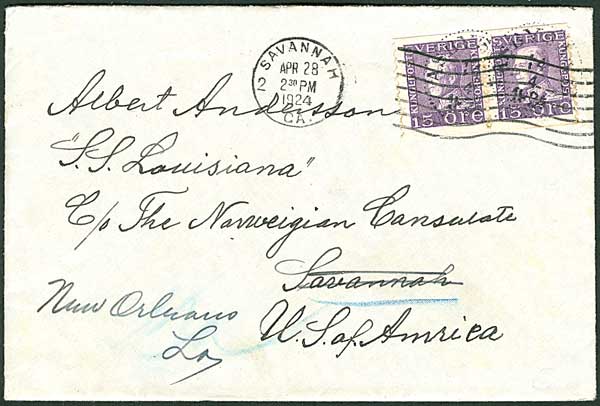 SAVANNAH
APR 28
2 30 PM
1924
GA.
2
SVERIGE SVERIGE
15 ÖRE 15 ÖRE
Albert Andersson
"S.S. Louisiana"
C/o The Norweigian Consulate
Savannah
New Orleans
La
U.S. of Amrica